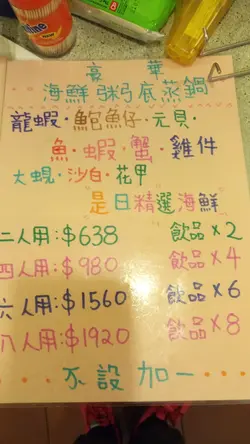 豪 華
海鮮粥底蒸鍋
龍蝦·鮑魚仔·元貝·
魚·蝦·蟹·雞件
大蜆·沙白·花甲
"是日精選海鮮"
二人用:$638 飲品×2
四人用:$980 飲品×4
六人用:$1560 飲品×6
八人用:$1920 飲品×8
不設加一